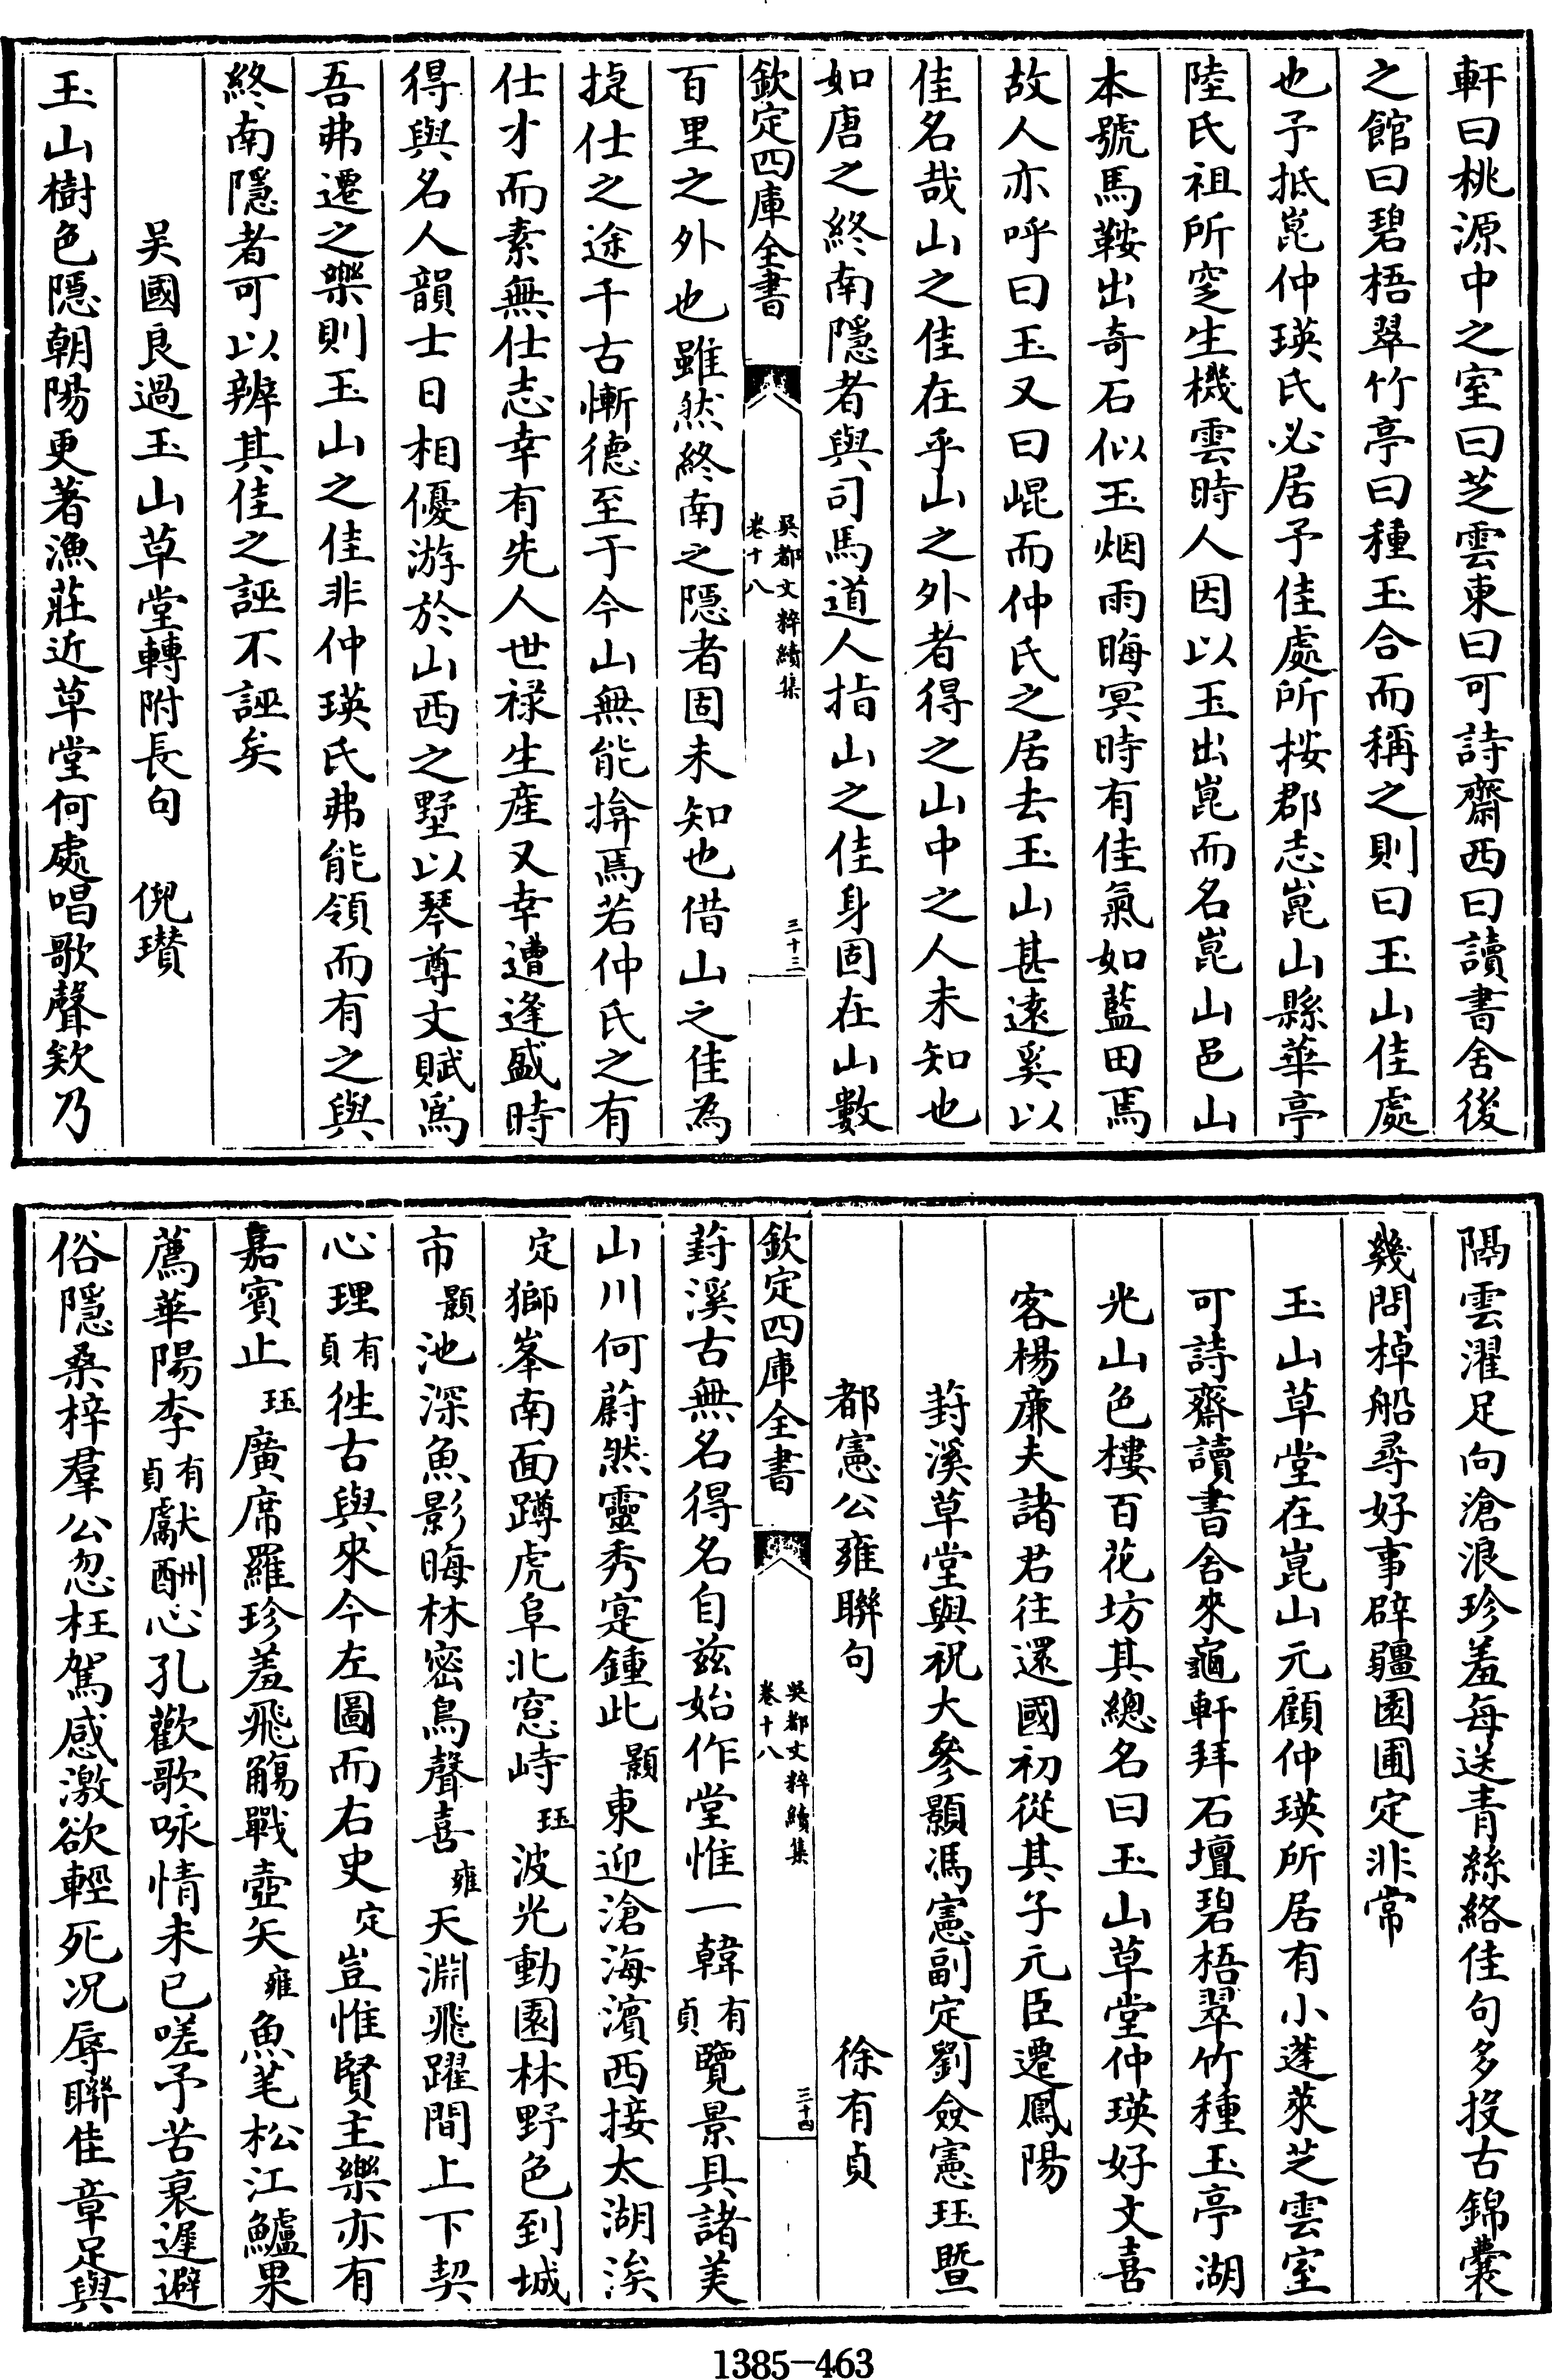 軒曰桃源中之室曰芝雲東曰可詩齋西曰讀書舍後
之館曰碧梧翠竹亭曰種玉合而稱之則曰玉山佳處
也予抵崑仲瑛氏必居予佳處所按郡志崑山縣華亭
陸氏祖所窆生機雲時人因以玉出崑而名崑山邑山
本號馬鞍出奇石似玉烟雨晦冥時有佳氣如藍田焉
故人亦呼曰玉又曰崐而仲氏之居去玉山甚遠奚以
佳名哉山之佳在乎山之外者得之山中之人未知也
如唐之終南隱者與司馬道人指山之佳身固在山數
欽定四庫全書
吳都文粹續集
卷十八
三十三
百里之外也雖然終南之隱者固未知也借山之佳為
捷仕之途千古慚德至于今山無能揜焉若仲氏之有
仕才而素無仕志幸有先人世禄生産又幸遭逢盛時
得與名人韻士日相優游於山西之墅以琴尊文賦爲
吾弗遷之樂則玉山之佳非仲瑛氏弗能領而有之與
終南隱者可以辨其佳之誣不誣矣
吴國良過玉山草堂轉附長句 倪瓚
玉山樹色隱朝陽更著漁莊近草堂何處唱歌聲欸乃
隔雲濯足向滄浪珍羞每送青絲絡佳句多投古錦囊
幾問棹船尋好事辟疆園圃定非常
玉山草堂在崑山元顧仲瑛所居有小蓬萊芝雲室
可詩齋讀書舍來龜軒拜石壇碧梧翠竹種玉亭湖
光山色樓百花坊其總名曰玉山草堂仲瑛好文喜
客楊廉夫諸君往還國初從其子元臣遷鳳陽
葑溪草堂與祝大參顥馮憲副定劉僉憲珏暨
都憲公雍聯句 徐有貞
欽定四庫全書
吳都文粹續集
卷十八
三十四
葑溪古無名得名自兹始作堂惟一韓有貞覽景具諸美
山川何蔚然靈秀寔鍾此顥東迎滄海濱西接太湖涘
定獅峯南面蹲虎阜北窓峙珏波光動園林野色到城
市顥池深魚影晦林密鳥聲喜雍天淵飛躍間上下契
心理有貞徃古與來今左圖而右史定豈惟賢主樂亦有
嘉賓止珏廣席羅珍羞飛觴戰壺矢雍魚芼松江鱸果
薦華陽李有貞獻酬心孔歡歌咏情未已嗟予苦衰遲避
俗隱桑梓羣公忽枉駕感激欲輕死况辱聯佳章足與
1385-463